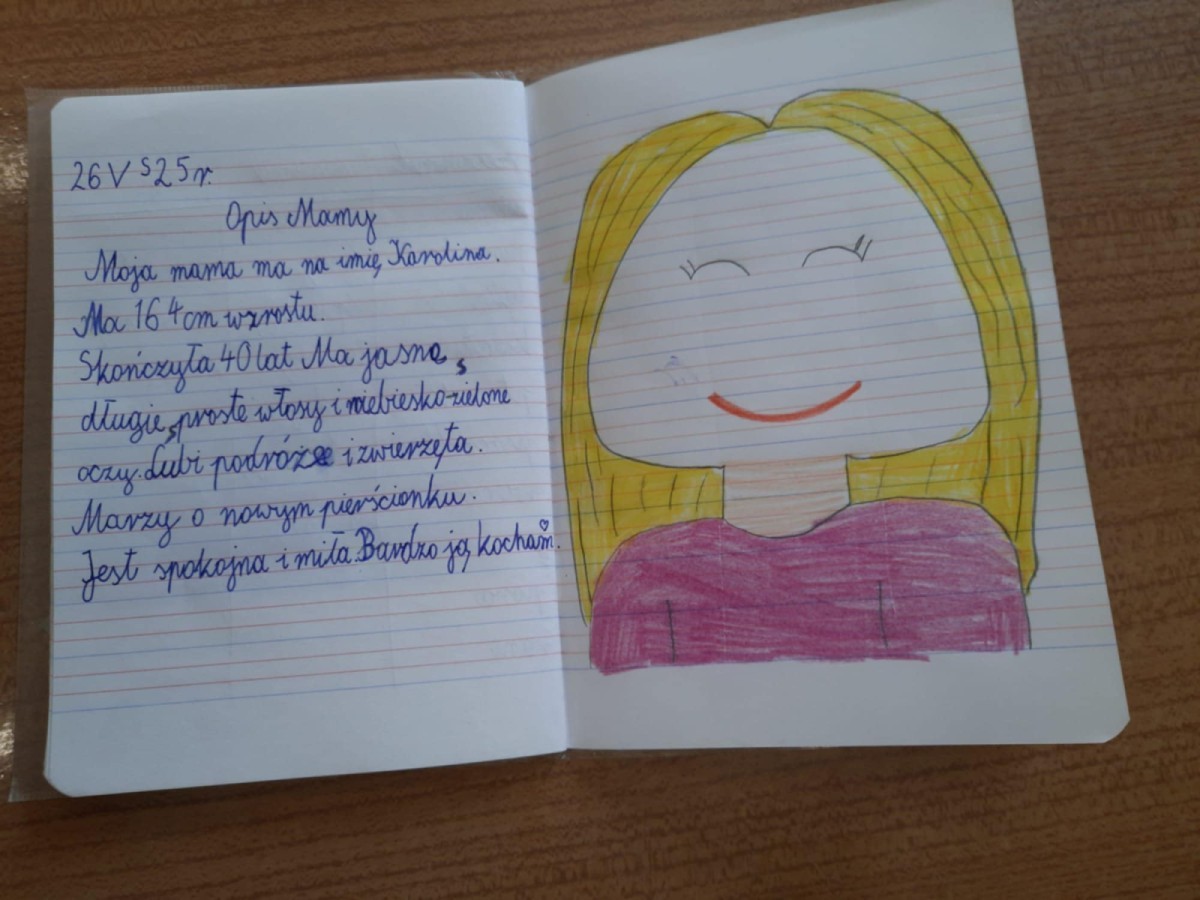 26 V s25 r.
Opis Mamy
Moja mama ma na imię Karolina.
Ma 164 cm wzrostu.
Skończyła 40 lat Ma jasne,
długie, proste włosy i niebiesko-zielone
oczy. Lubi podróże i zwierzęta.
Marzy o nowym pierścionku.
Jest spokojna i miła. Bardzo ją kocham.